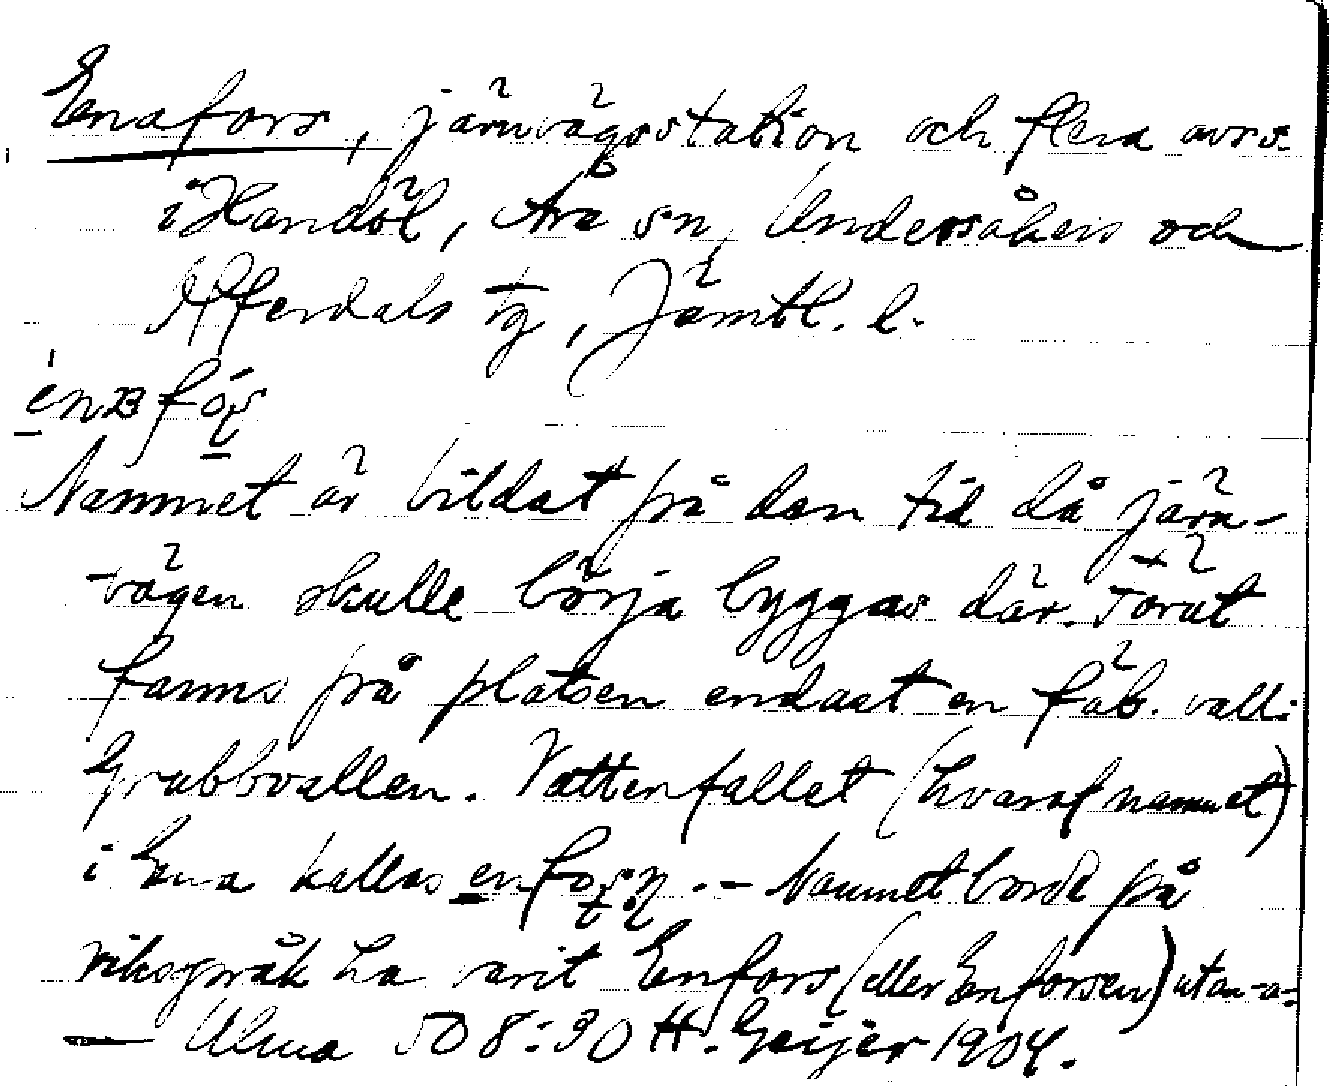 Enafors, järnvägsstation och flera avs.
i Handöl, Åre sn, Undersåkers och
Offerdals tg, Jämtl. l.
Namnet är bildat på den tid då järn-
vägen skulle börja byggas där. Förut
fanns på platsen endast en fäb. vall:
Grubbvallen. Vattenfallet (hvaraf namnet)
i Ena kallas .- Namnet borde på
riksspråk ha varit Enfors (eller Enforsen) utan -a-
— Ulma 508:30 H. Geijer 1904.